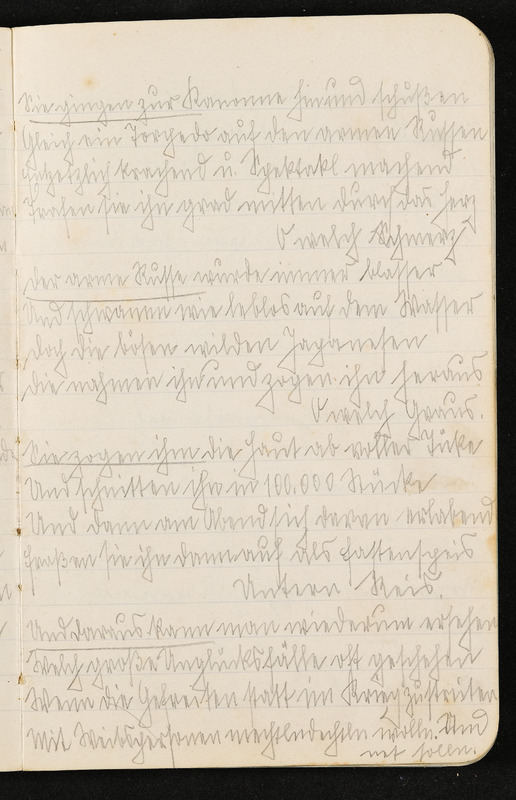 Sie gingen zur Kanonne hin und schußen
Gleich ein Torpedo auf den armen Russen
Entsetzlich krachend u. Spektakl machend
Trafen sie ihn grad mitten durch das Herz
O welch Schmerz
Der arme Russe wurde immer blasser
Und schwamm wie leblos auf dem Wasser
Doch die bösen wilden Japanesen
die nahmen ihn und zogen ihn heraus
O welch Graus.
Sie zogen ihm die Haut ab voller Tüke
Und schnitten ihn in 100.000 Stücke
Und dann am Abend sich daran erlabend
fraßen sie ihn dann auf als Fastenspeis
Untern Reis.
Und daraus kann man wiederum ersehen
Welch große Unglücksfälle oft geschehen
Wenn die Gefreiten statt im Krieg zu streiten
mit Weibspersonen mechtln dechtln wolln. Und
net solln.